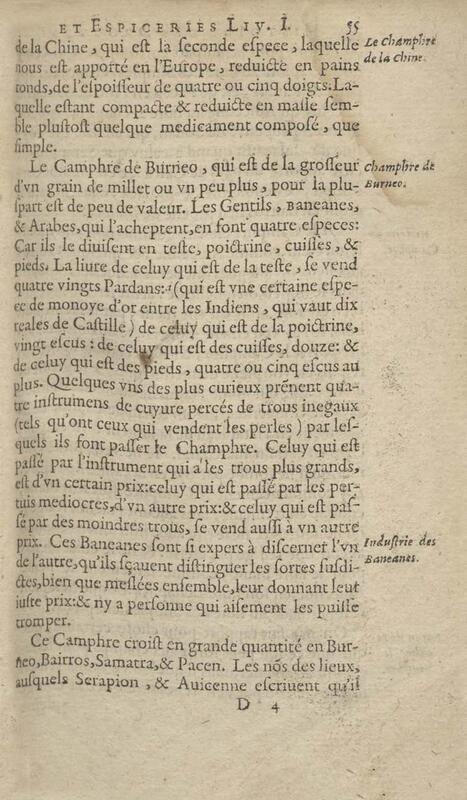 ET ESPICERIES LIV. I. 55
de la Chine, qui est la seconde espece, laquelle
nous est apporté en l'Europe, reduicte en pains
ronds, de l'espoisseur de quatre ou cinq doigts. La-
quelle estant compacte & reduicte en masse sem-
ble plustost quelque medicament composé, que
simple.
Le Champhre
de la Chine.
Le Camphre de Burneo, qui est de la grosseur
d'vn grain de millet ou vn peu plus, pour la plu-
spart est de peu de valeur. Les Gentils, BANEANES,
& Arabes, qui l'acheptent, en font quatre especes:
Car ils le diuisent en teste, poictrine, cuisses, &
pieds. La liure de celuy qui est de la teste, se vend
quatre vingts Pardans: (qui est vne certaine espe-
ce de monoye d'or entre les Indiens, qui vaut dix
reales de Castille) de celuy qui est de la poictrine,
vingt escus: de celuy qui est des cuisses, douze: &
de celuy qui est des pieds, quatre ou cinq escus au
plus. Quelques vns des plus curieux prēnent qua-
tre instrumens de cuyure percés de trous inegaux
(tels qu'ont ceux qui vendent les perles) par les-
quels ils font passer le Champhre. Celuy qui est
passé par l'instrument qui a les trous plus grands,
est d'vn certain prix: celuy qui est passé par les per-
tuis mediocres, d'vn autre prix: & celuy qui est pas-
sé par des moindres trous, se vend aussi à vn autre
prix. Ces Baneanes sont si expers à discerner l'vn
de l'autre, qu'ils sçauent distinguer les sortes susdi-
ctes, bien que meslées ensemble, leur donnant leur
iuste prix: & ny a personne qui aisement les puisse
tromper.
Champhre de
Burneo.
Industrie des
Baneanes.
Ce Camphre croist en grande quantité en Bur-
neo, Bairros, Samatra, & Pacen. Les nōs des lieux,
ausquels Serapion, & Auicenne escriuent qu'il
D 4